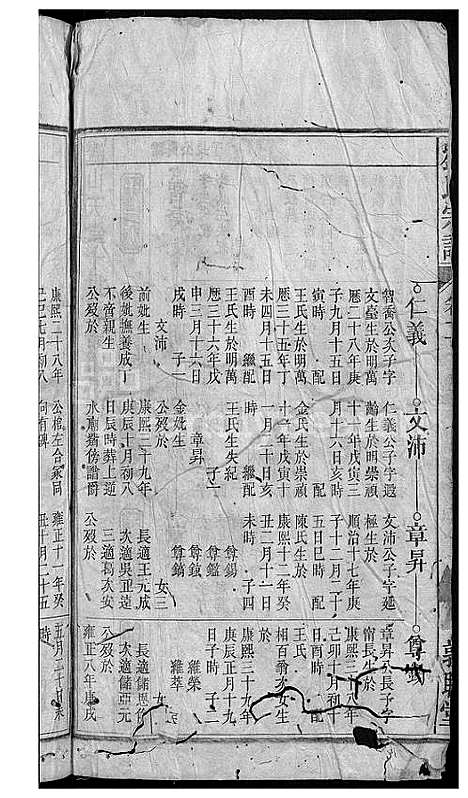 仁義
文沛
章昇
智喬公次子字
文臺生於明萬
曆二十八年庚
子九月十五日
寅時 配
王氏生於明萬
曆三十五年丁
未四月十五日
酉時 繼配
王氏生於明萬
曆三十六年戊
申三月十六日
戌時 子一
文沛
前妣生
後妣撫養成丁
不啻親生
公歿於
康熙二十八年
己巳七月初八
仁義公子字遐
齡生於明崇禎
十一年戊寅三
月十六日亥時
配
金氏生於崇禎
十一年戊寅十
一月二十日亥
時 繼配
王氏生失紀
子二
章昇
金妣生
公歿於
康熙三十九年
庚辰十月初八
日辰時葬上逆
水廟猶傍譜爵
公棺左合冢同
向有碑
文沛公子字延
極生於
順治十七年庚
子十二月十
五日巳時 配
陳氏生於
康熙十二年癸
丑二月十一日
未時 子四
尊錫
尊鑑
尊鉞
尊鎬
女三
長適王元成
次適吳正逵
三適葛次安
公歿於
雍正十一年癸
丑十月二十五
時
章昇公長子字
甯長生於
康熙三十八年
己卯十月初十
日酉時 配
王氏
相百翁次女生
於
庚辰正月十九
日子時 子二
維榮
維萃
女
長適儲
次適儲亞元
公歿於
雍正八年庚戌
五月二十日未